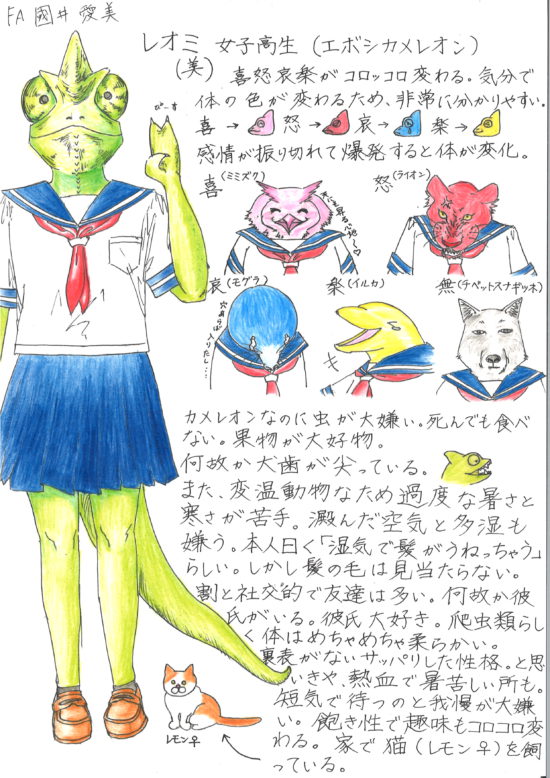 FA 國井 愛美
レオミ 女子高生 (エボシカメレオン)
(美)
喜怒哀楽がコロッコロ変わる。気分で
体の色が変わるため、非常に分かりやすい。
喜→ 怒→ 哀→ 楽→
感情が振り切れて爆発すると体が変化。
ぴーす
喜(ミミズク)
怒(ライオン)
哀(モグラ)
穴があらば入りたし…
楽(イルカ)
キ
無(チベットスナギツネ)
カメレオンなのに虫が大嫌い。死んでも食べ
ない。果物が大好物。
何故か犬歯が尖っている。
また、変温動物なため過度な暑さと
寒さが苦手。澱んだ空気と多湿も
嫌う。本人曰く「湿気で髪がうねっちゃう」
らしい。しかし髪の毛は見当たらない。
割と社交的で友達は多い。何故か彼
氏がいる。彼氏大好き。爬虫類らし
く体はめちゃめちゃ柔らかい。
裏表がないサッパリした性格。と思
いきや、熱血で暑苦しい所も。
短気で待つのと我慢が大嫌
い。飽き性で趣味もコロコロ変
わる。家で猫(レモン♀)を飼
っている。
レモン♀